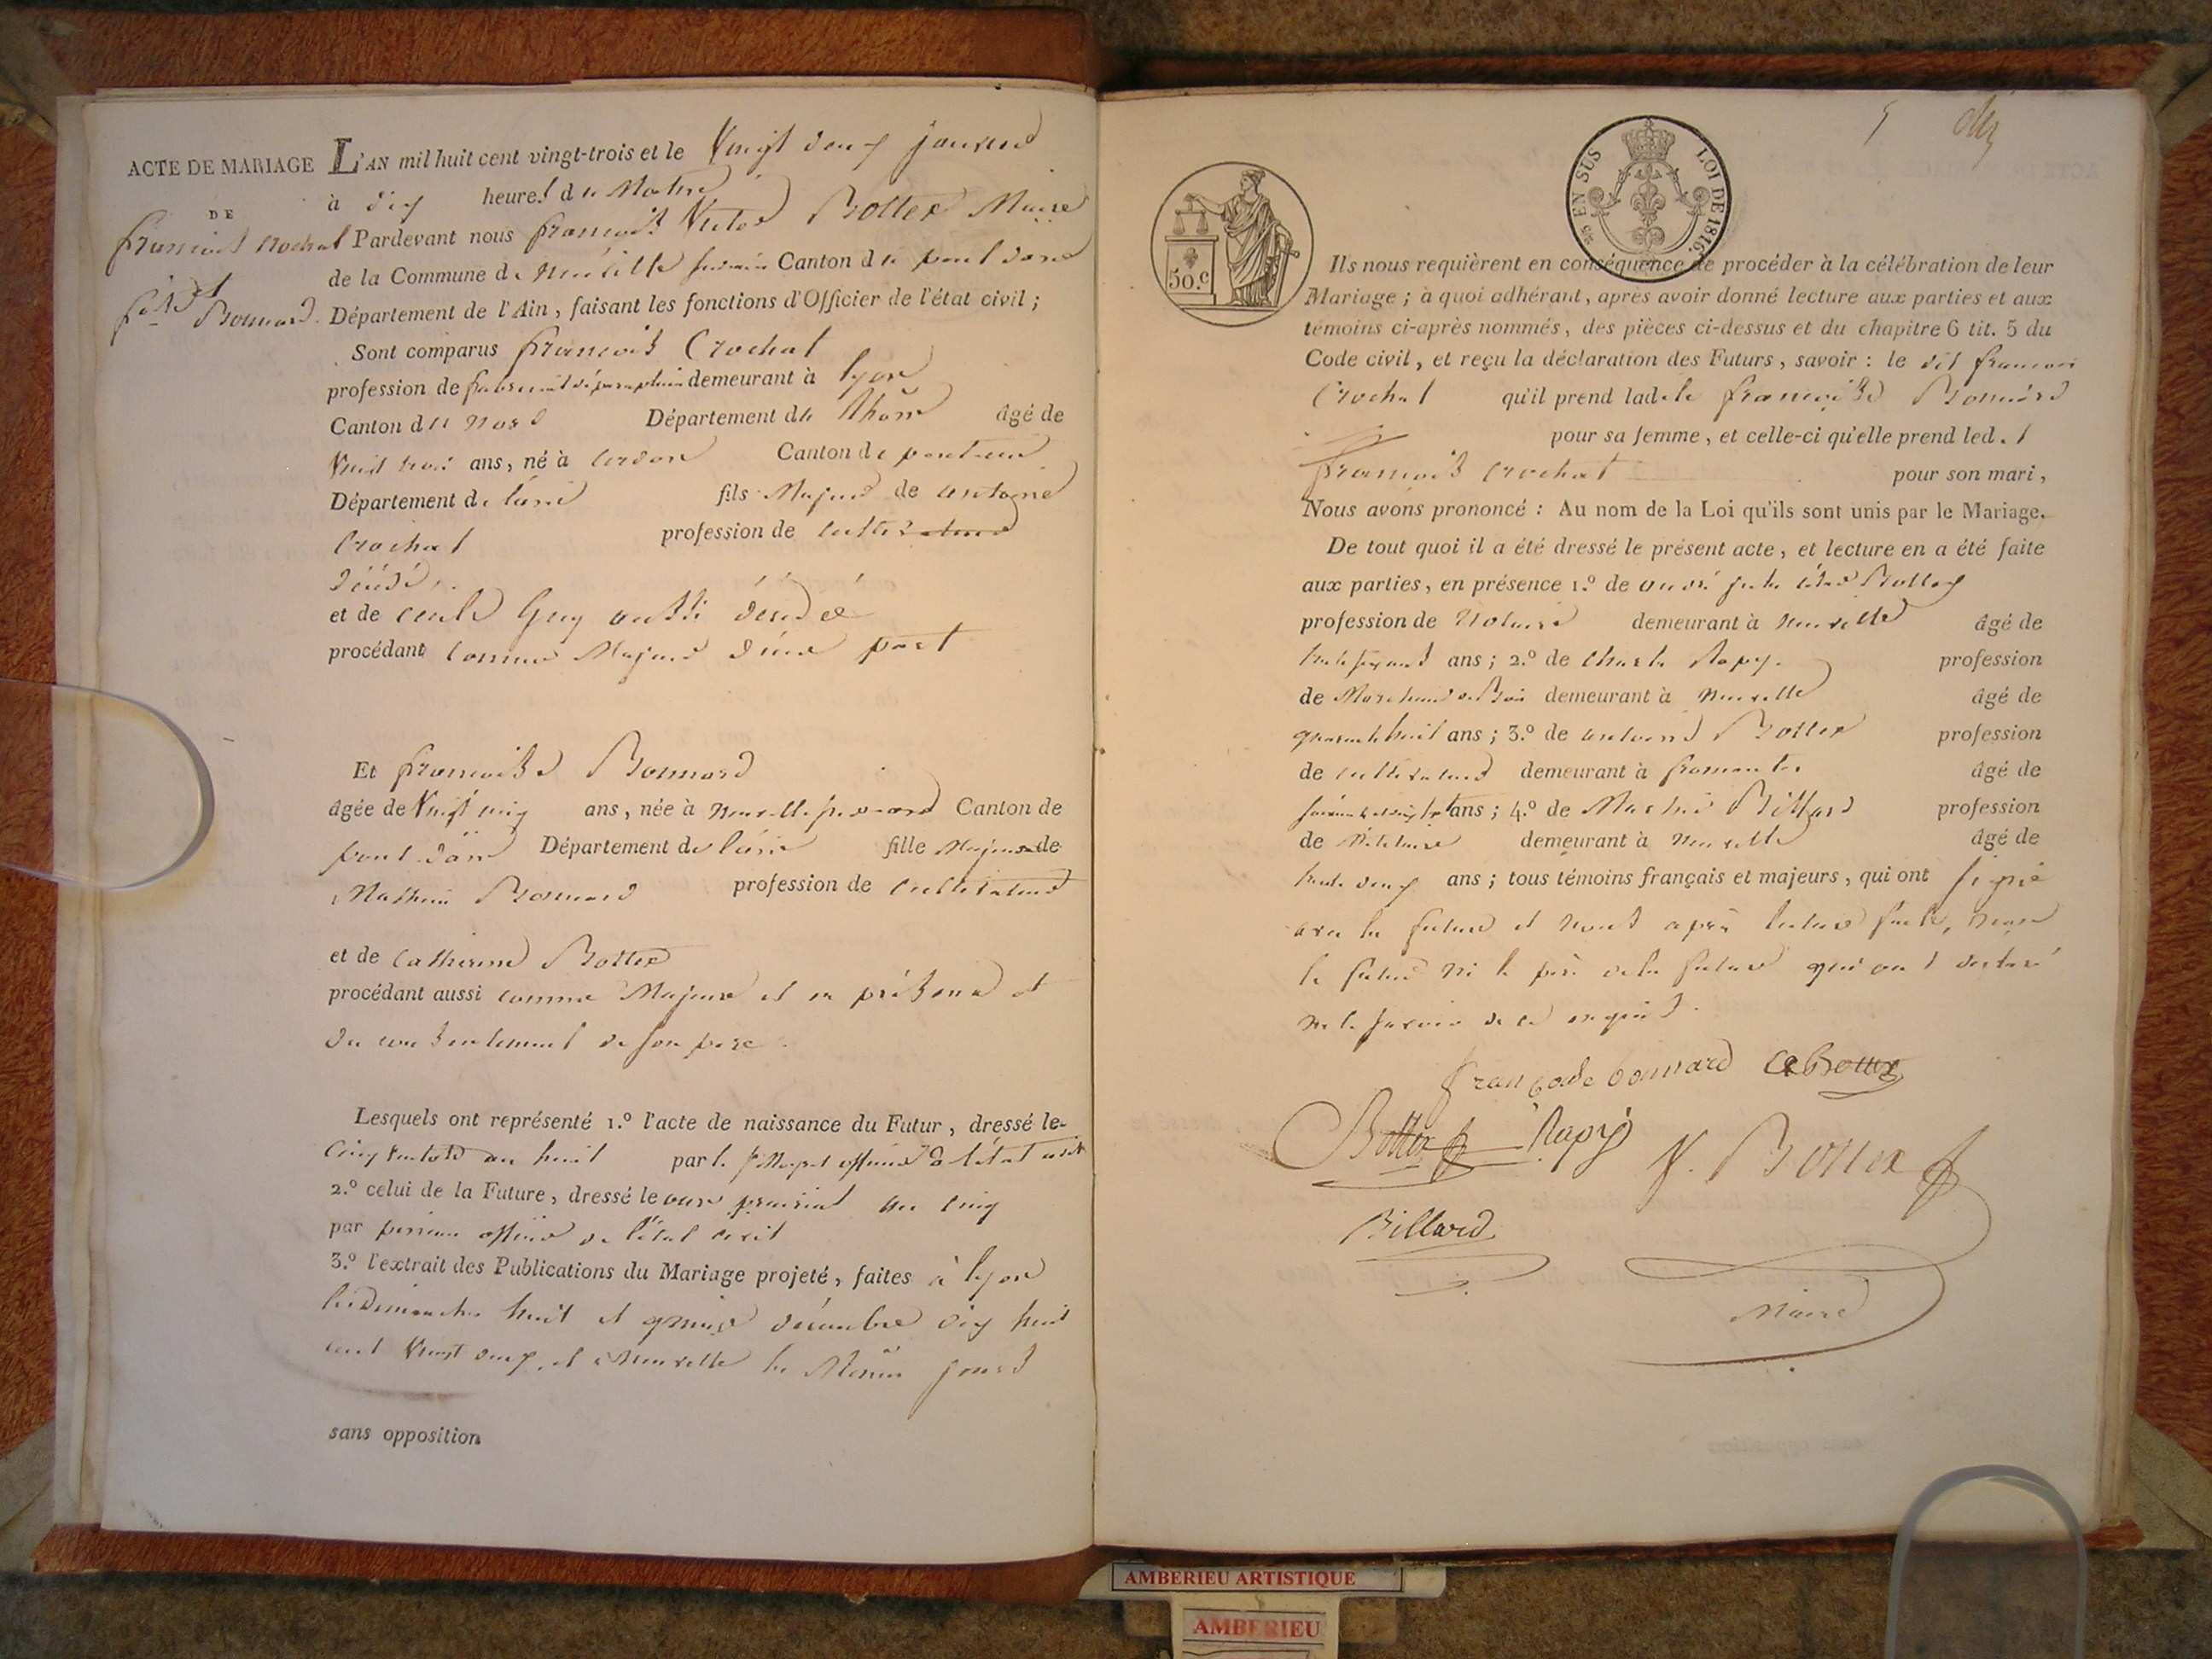 ACTE DE MARIAGE
DE
françois crochat
et
f.se Bonnard.
L'AN mil huit cent vingt-trois et le Vingt deux janvier
à dix heures du Matin
Pardevant nous françois Victor Bottex Maire
de la Commune de Neuville sur ain Canton de pont dain
Département de l'Ain, faisant les fonctions d'Officier de l'état civil ;
Sont comparus françois Crochat
profession de fabricant de parapluie demeurant à lyon
Canton du Nord Département du Rhône âgé de
Vingt trois ans, né à cerdon Canton de poncin
Département de l'ain fils Majeur de antoine
Crochat profession de cultivateur
décédé,
et de Guy aussi décédée
procédant comme Majeur d'une part
Et françoise Bonnard
âgée de Vingt cinq ans, née à Neuville sur ain Canton de
pont dain Département de l'ain fille Majeure de
Mathieu Bonnard profession de cultivateur
et de Catherine Bottex
procédant aussi comme Majeure et en présence et
du consentement de son père
Lesquels ont représenté 1.º l'acte de naissance du Futur, dressé le
cinq Ventose an huit par le officier de l'état civil
2.º celui de la Future, dressé le onze prairial an cinq
par officier de l'état civil
3.º l'extrait des Publications du Mariage projeté, faites à lyon
les Dimanches huit et quinze décembre dix huit
cent Vingt deux, et à Neuville les Mêmes jours
sans opposition
5 dix
50.c
EN SUS LOI DE 1816.
Ils nous requièrent en conséquence de procéder à la célébration de leur
Mariage ; à quoi adhérant, après avoir donné lecture aux parties et aux
témoins ci-après nommés, des pièces ci-dessus et du chapitre 6 tit. 5 du
Code civil, et reçu la déclaration des Futurs, savoir : le dit françois
Crochat qu'il prend lad. françoise Bonnard
pour sa femme, et celle-ci qu'elle prend led. t
françois crochat pour son mari,
Nous avons prononcé : Au nom de la Loi qu'ils sont unis par le Mariage.
De tout quoi il a été dressé le présent acte, et lecture en a été faite
aux parties, en présence 1.º de andré César Bottex
profession de Notaire demeurant à Neuville âgé de
ans ; 2.º de Charle Rapy. profession
de Marchand de Bois demeurant à Neuville âgé de
quarante huit ans ; 3.º de antoine Bottex profession
de cultivateur demeurant à fromente âgé de
ans ; 4.º de Billard profession
de demeurant à Neuville âgé de
trente deux ans ; tous témoins français et majeurs, qui ont signé
avec la future et nous après lecture faite, non
le futur ni le père de la future qui ont déclaré
ne le savoir de ce enquis.
françoise bonnard Bottex
Bottex Rapy V. Bottex
Billard
Maire
AMBERIEU ARTISTIQUE
AMBERIEU